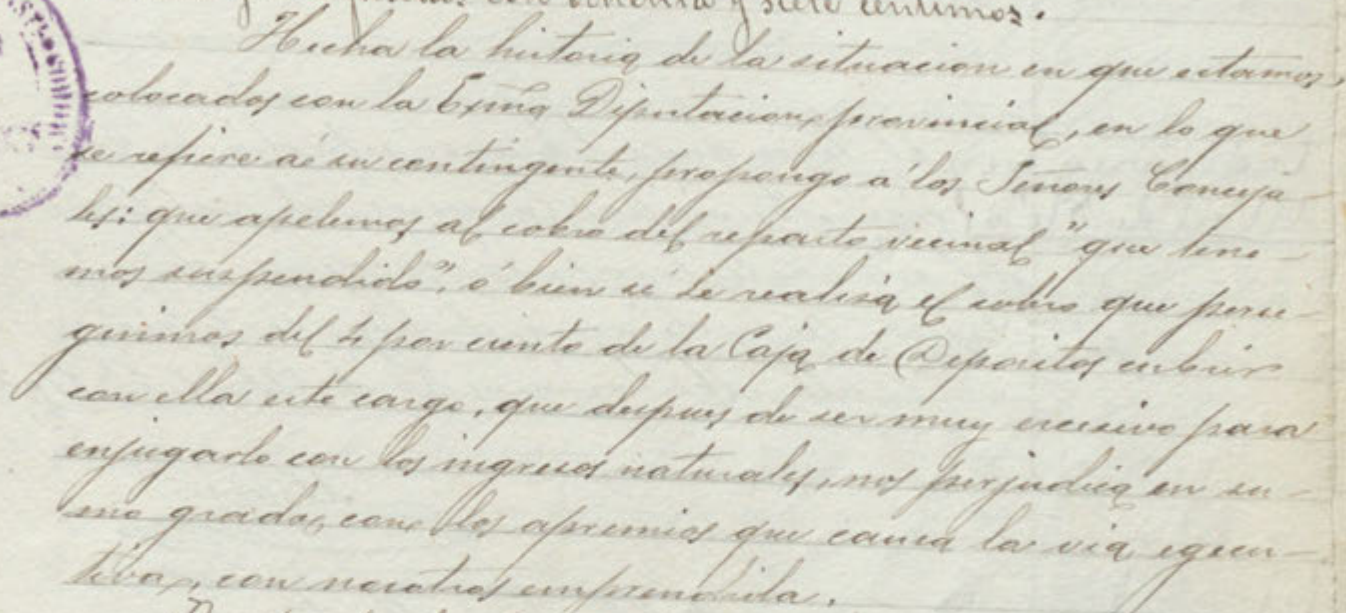 pesetas con ochenta y siete centimos.
Hecha la historia de la situacion en que estamos,
colocados con la Exmª Diputacion provincial, en lo que
se refiere á su contingente, propongo a los Señores Conceja-
les: que apelemos al cobro del reparto vecinal "que tene-
mos suspendido", ó bien si se realiza el cobro que perse-
guimos del 4 por ciento de la Caja de Depositos cubrir
con ella este cargo, que despues de ser muy excesivo para
enjugarlo con los ingresos naturales, nos perjudica en su-
mo grado, con los apremios que causa la via egecu-
tiva, con nosotros emprendida.